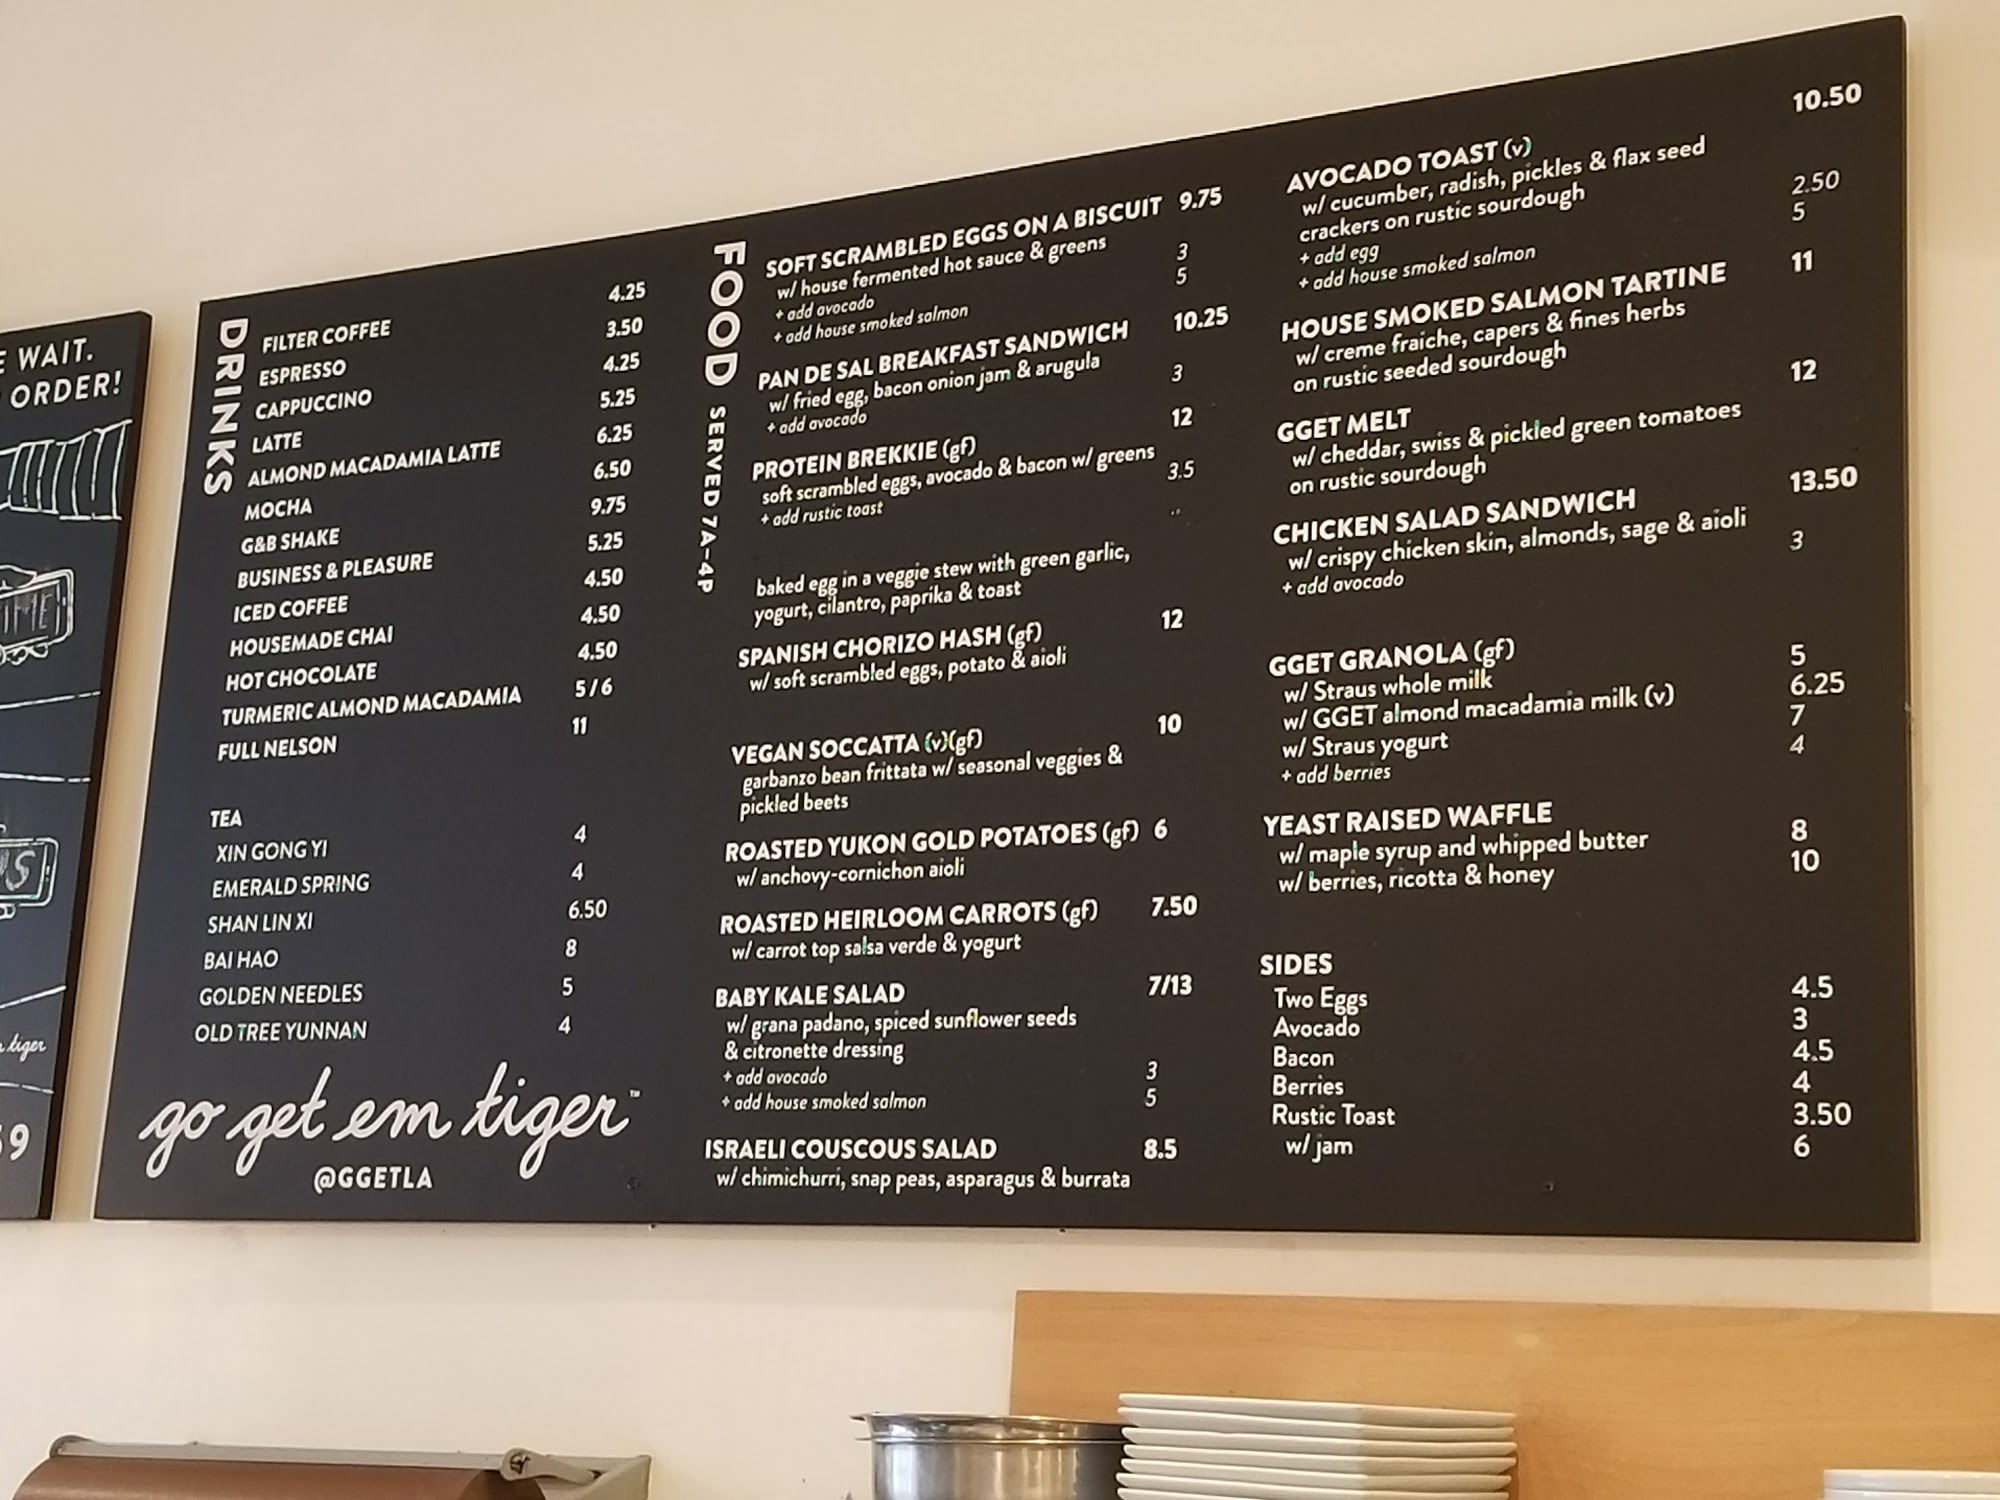 E WAIT.
ORDER!
tiger
9
DRINKS
FILTER COFFEE 4.25
ESPRESSO 3.50
CAPPUCCINO 4.25
LATTE 5.25
ALMOND MACADAMIA LATTE 6.25
MOCHA 6.50
G&B SHAKE 9.75
BUSINESS & PLEASURE 5.25
ICED COFFEE 4.50
HOUSEMADE CHAI 4.50
HOT CHOCOLATE 4.50
TURMERIC ALMOND MACADAMIA 5/6
FULL NELSON 11
TEA
XIN GONG YI 4
EMERALD SPRING 4
SHAN LIN XI 6.50
BAI HAO 8
GOLDEN NEEDLES 5
OLD TREE YUNNAN 4
go get em tiger™
@GGETLA
FOOD SERVED 7A-4P
SOFT SCRAMBLED EGGS ON A BISCUIT 9.75
w/ house fermented hot sauce & greens
+ add avocado 3
+ add house smoked salmon 5
PAN DE SAL BREAKFAST SANDWICH 10.25
w/ fried egg, bacon onion jam & arugula
+ add avocado 3
PROTEIN BREKKIE (gf) 12
soft scrambled eggs, avocado & bacon w/ greens
+ add rustic toast 3.5
baked egg in a veggie stew with green garlic,
yogurt, cilantro, paprika & toast
SPANISH CHORIZO HASH (gf) 12
w/ soft scrambled eggs, potato & aioli
VEGAN SOCCATTA (v)(gf) 10
garbanzo bean frittata w/ seasonal veggies &
pickled beets
ROASTED YUKON GOLD POTATOES (gf) 6
w/ anchovy-cornichon aioli
ROASTED HEIRLOOM CARROTS (gf) 7.50
w/ carrot top salsa verde & yogurt
BABY KALE SALAD 7/13
w/ grana padano, spiced sunflower seeds
& citronette dressing
+ add avocado 3
+ add house smoked salmon 5
ISRAELI COUSCOUS SALAD 8.5
w/ chimichurri, snap peas, asparagus & burrata
AVOCADO TOAST (v) 10.50
w/ cucumber, radish, pickles & flax seed
crackers on rustic sourdough
+ add egg 2.50
+ add house smoked salmon 5
HOUSE SMOKED SALMON TARTINE 11
w/ creme fraiche, capers & fines herbs
on rustic seeded sourdough
GGET MELT 12
w/ cheddar, swiss & pickled green tomatoes
on rustic sourdough
CHICKEN SALAD SANDWICH 13.50
w/ crispy chicken skin, almonds, sage & aioli
+ add avocado 3
GGET GRANOLA (gf)
w/ Straus whole milk 5
w/ GGET almond macadamia milk (v) 6.25
w/ Straus yogurt 7
+ add berries 4
YEAST RAISED WAFFLE
w/ maple syrup and whipped butter 8
w/ berries, ricotta & honey 10
SIDES
Two Eggs 4.5
Avocado 3
Bacon 4.5
Berries 4
Rustic Toast 3.50
w/ jam 6